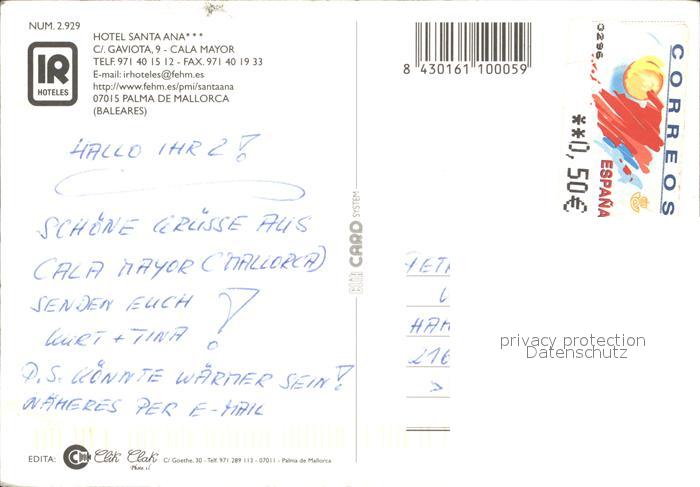 NUM. 2.929
IR
HOTELES
HOTEL SANTA ANA***
C/. GAVIOTA, 9 - CALA MAYOR
TELF. 971 40 15 12 - FAX. 971 40 19 33
E-mail: irhoteles@fehm.es
http://www.fehm.es/pmi/santaana
07015 PALMA DE MALLORCA
(BALEARES)
HALLO IHR 2!
SCHÖNE GRÜSSE AUS
CALA MAYOR (MALLORCA)
SENDEN EUCH
KURT + TINA!
P.S. KÖNNTE WÄRMER SEIN!
NÄHERES PER E-MAIL
EDITA: Clik Clak C/ Goethe, 30 - Telf. 971 289 113 - 07011 - Palma de Mallorca
Photo s.l.
CARD SYSTEM
8 430161 100059
0296
CORREOS
ESPAÑA
**0,50€
PETR
HAM
216
privacy protection
Datenschutz